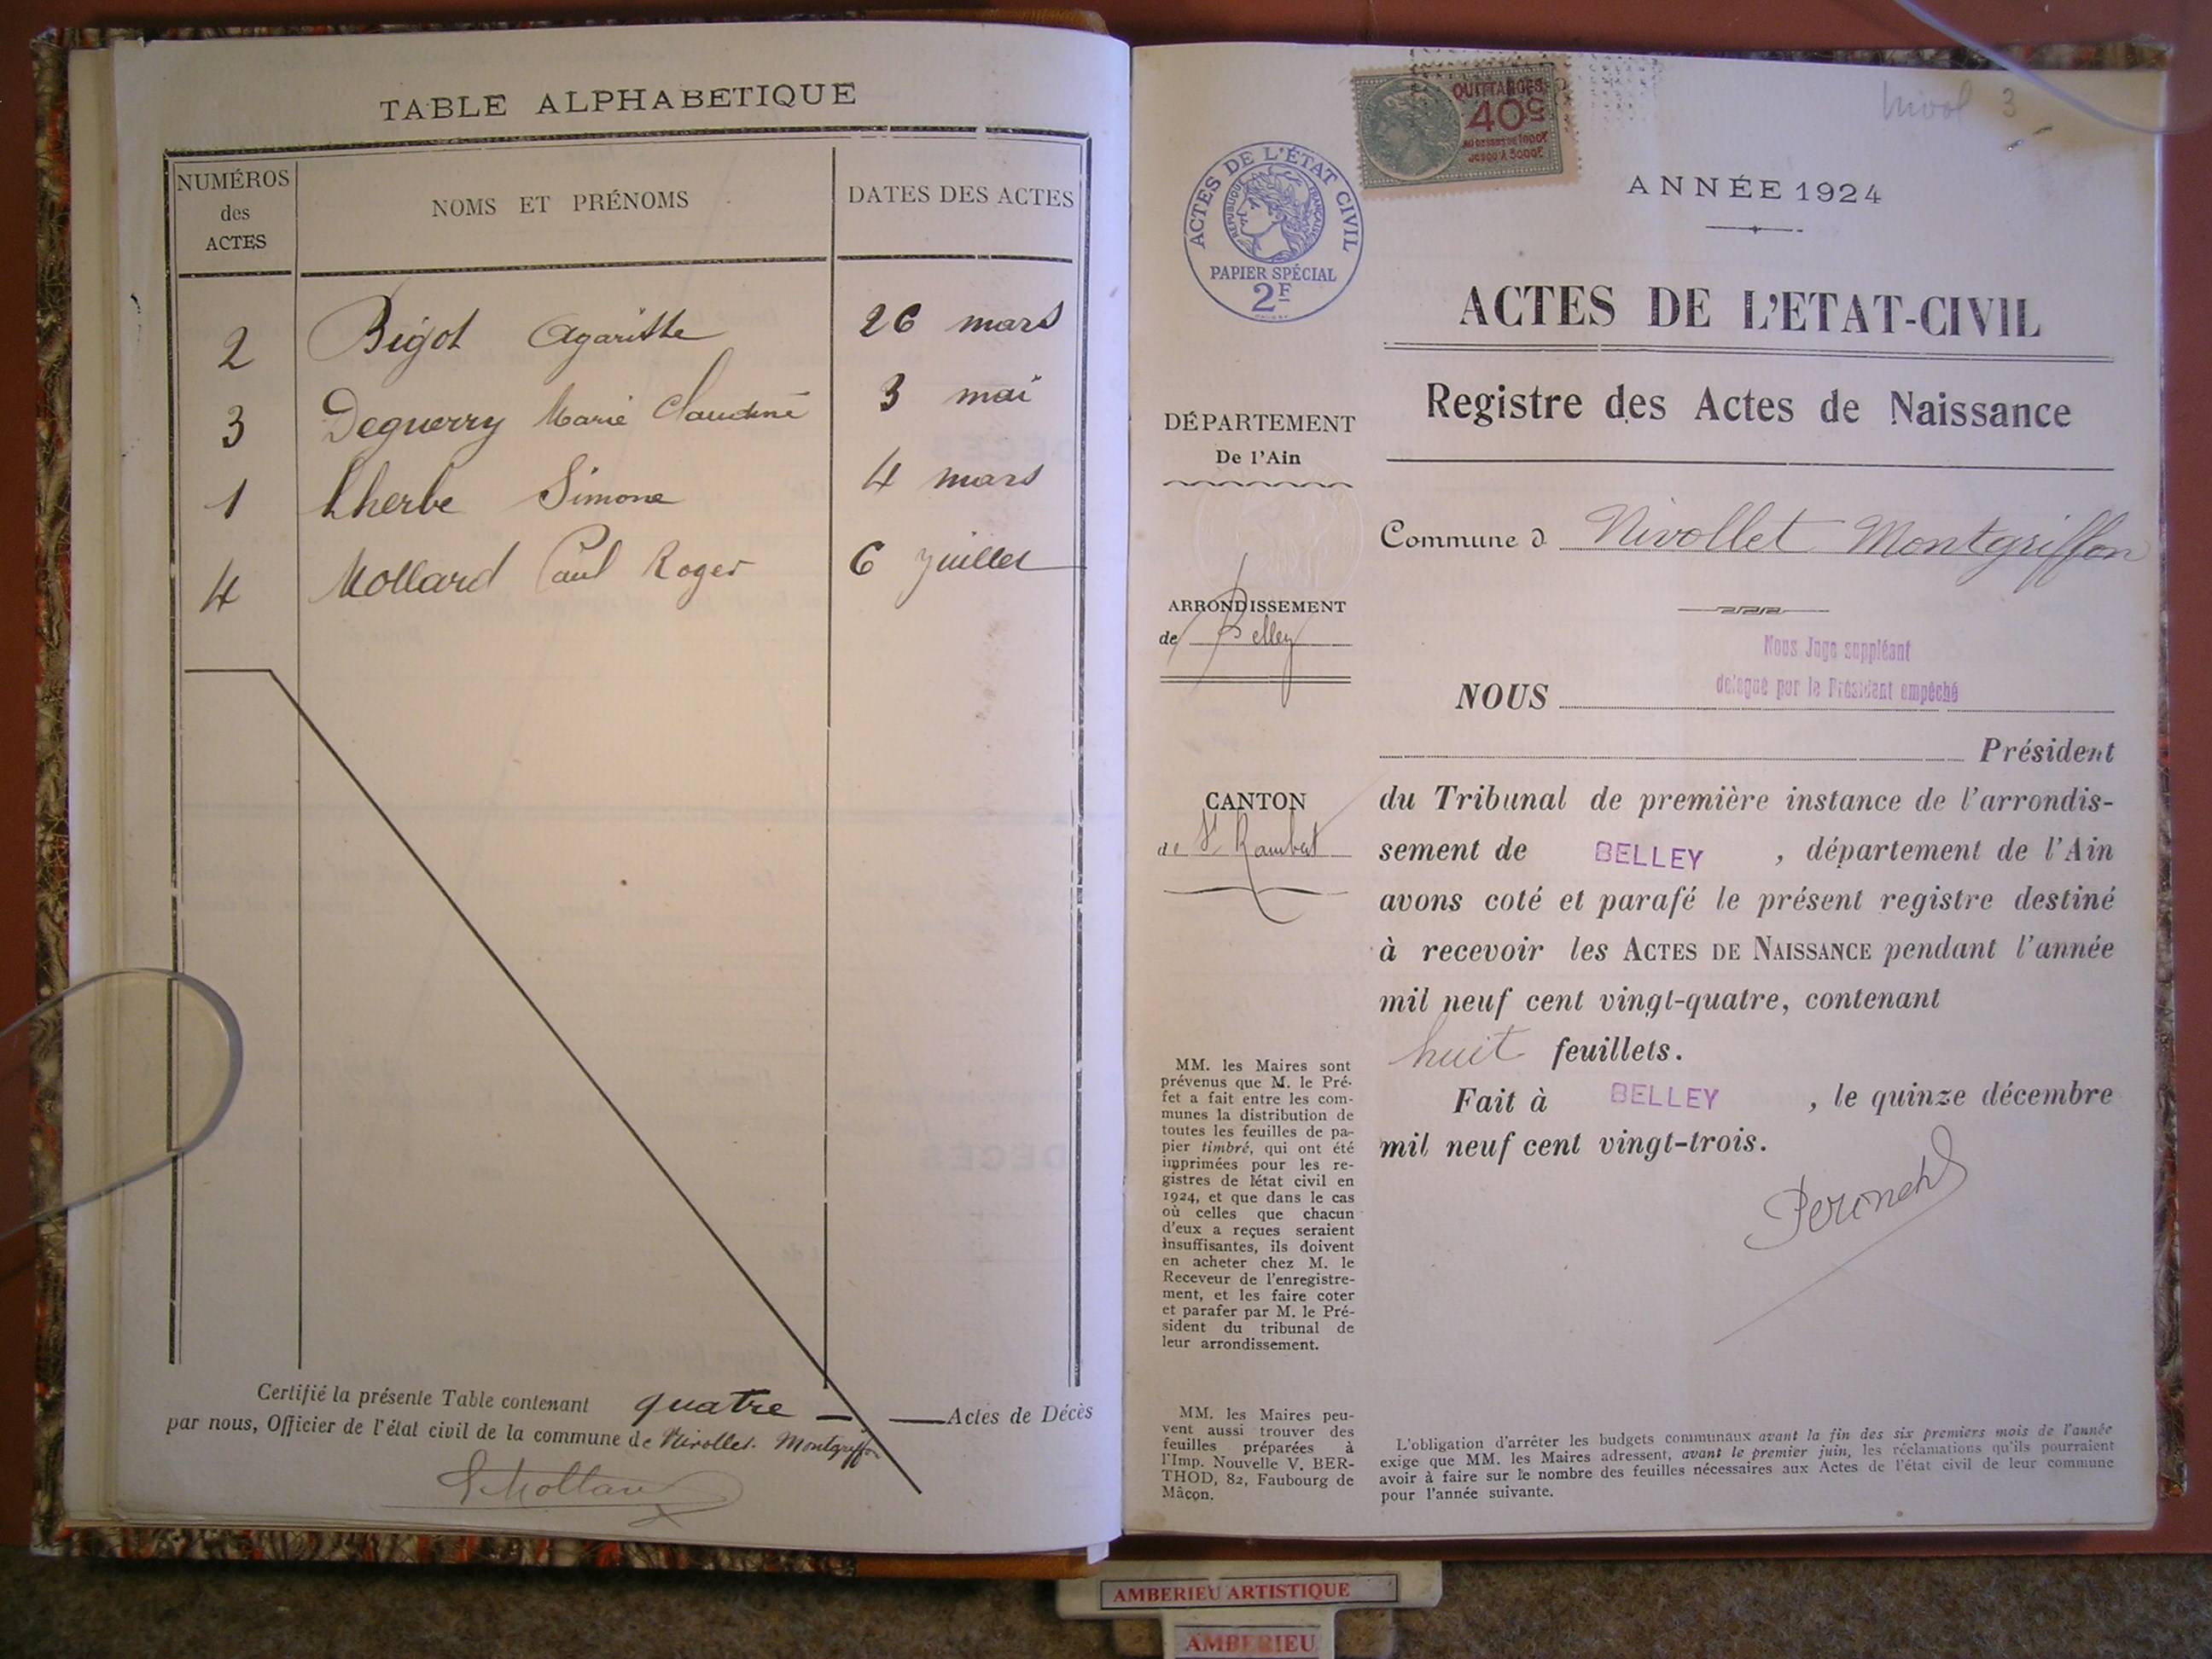 TABLE ALPHABETIQUE
NUMÉROS
des
ACTES
NOMS ET PRÉNOMS
DATES DES ACTES
2 Bigot Agarithe 26 mars
3 Deguerry Marie Claudine 3 mai
1 Lherbe Simone 4 mars
4 Mollard Paul Roger 6 juillet
Certifié la présente Table contenant quatre Actes de Décès
par nous, Officier de l'état civil de la commune de Nivollet. Montgriffon
Mollard
QUITTANCES
40c
AU DESSUS DE 1000F
JUSQU'A 3000F
ACTES DE L'ÉTAT CIVIL
RÉPUBLIQUE FRANÇAISE
PAPIER SPÉCIAL
2F
Nivol 3
ANNÉE 1924
ACTES DE L'ETAT-CIVIL
Registre des Actes de Naissance
DÉPARTEMENT
De l'Ain
Commune d Nivollet Montgriffon
ARRONDISSEMENT
de Belley
CANTON
de St Rambert
Nous Juge suppléant
délégué par le Président empêché
NOUS
Président
du Tribunal de première instance de l'arrondis-
sement de BELLEY, département de l'Ain
avons coté et parafé le présent registre destiné
à recevoir les ACTES DE NAISSANCE pendant l'année
mil neuf cent vingt-quatre, contenant
huit feuillets.
Fait à BELLEY, le quinze décembre
mil neuf cent vingt-trois.
MM. les Maires sont
prévenus que M. le Pré-
fet a fait entre les com-
munes la distribution de
toutes les feuilles de pa-
pier timbré, qui ont été
imprimées pour les re-
gistres de létat civil en
1924, et que dans le cas
où celles que chacun
d'eux a reçues seraient
insuffisantes, ils doivent
en acheter chez M. le
Receveur de l'enregistre-
ment, et les faire coter
et parafer par M. le Pré-
sident du tribunal de
leur arrondissement.
MM. les Maires peu-
vent aussi trouver des
feuilles préparées à
l'Imp. Nouvelle V. BER-
THOD, 82, Faubourg de
Mâcon.
L'obligation d'arrêter les budgets communaux avant la fin des six premiers mois de l'année
exige que MM. les Maires adressent, avant le premier juin, les réclamations qu'ils pourraient
avoir à faire sur le nombre des feuilles nécessaires aux Actes de l'état civil de leur commune
pour l'année suivante.
AMBERIEU ARTISTIQUE
AMBERIEU